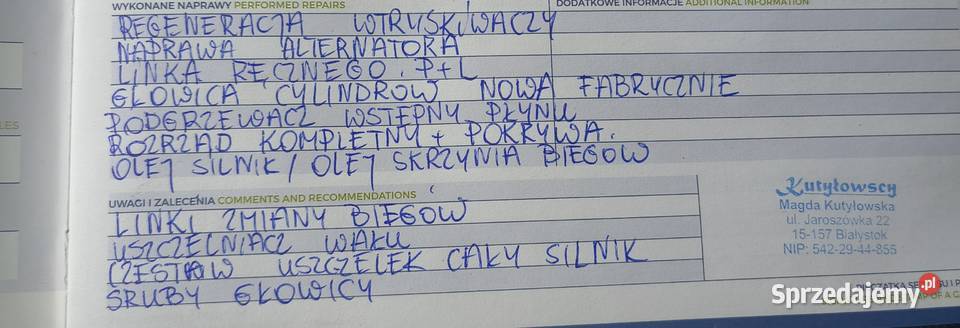 WYKONANE NAPRAWY PERFORMED REPAIRS
DODATKOWE INFORMACJE ADDITIONAL INFORMATION
REGENERACJA WTRYSKIWACZY
NAPRAWA ALTERNATORA
LINKA RĘCZNEGO. P+L
GŁOWICA CYLINDRÓW NOWA FABRYCZNIE
PODGRZEWACZ WSTĘPNY PŁYNU
ROZRZĄD KOMPLETNY + POKRYWA.
OLEJ SILNIK / OLEJ SKRZYNIA BIEGÓW
UWAGI I ZALECENIA COMMENTS AND RECOMMENDATIONS
LINKI ZMIANY BIEGÓW
USZCZELNIACZ WAŁU
USZCZELEK CAŁY SILNIK
ŚRUBY GŁOWICY
Kutyłowscy
Magda Kutyłowska
ul. Jaroszówka 22
15-157 Białystok
NIP: 542-29-44-855
Sprzedajemy.pl